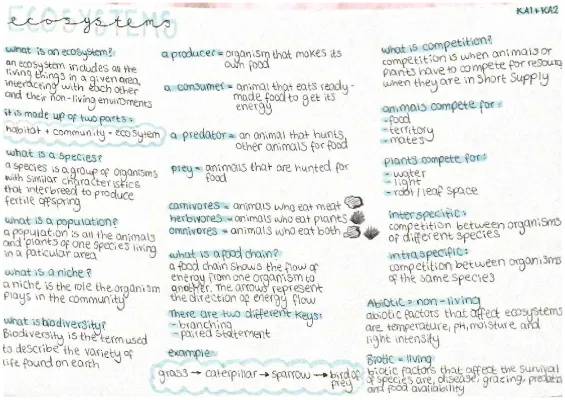 ecosystems
KA1+KA2
what is an ecosystem?
an ecosystem includes all the
living things in a given area,
interacting with each other
and their non-living enviroments
it is made up of two parts:
habitat + community = ecosytem
what is a species?
a species is a group of organisms
with similar characteristics
that interbreed to produce
fertile offspring
what is a population?
a population is all the animals
and plants of one species living
in a paticular area
what is a niche?
a niche is the role the organism
plays in the community
what is biodiversity?
Biodiversity is the term used
to describe the variety of
life found on earth
a producer = organism that makes its
own food
a consumer = animal that eats ready-
made food to get its
energy
a predator = an animal that hunts
other animals for food
prey = animals that are hunted for
food
carnivores = animals who eat meat
herbivores = animals who eat plants
omnivores = animals who eat both
what is a food chain?
a food chain shows the flow of
energy from one organism to
another. The arrows represent
the direction of energy flow
There are two different keys:
- branching
- paired statement
example:
grass → caterpillar → sparrow → bird of
prey
what is competition?
competition is when animals or
plants have to compete for resourc
when they are in short supply
animals compete for:
- food
- territory
- mates
plants compete for:
- water
- light
- root/leaf space
interspecific:
competition between organisms
of different species
intraspecific:
competition between organisms
of the same species
Abiotic = non-living
abiotic factors that affect ecosystems
are temperature, pH, moisture and
light intensity
Biotic = living
biotic factors that affect the survival
of species are, disease, grazing, predation
and food availability